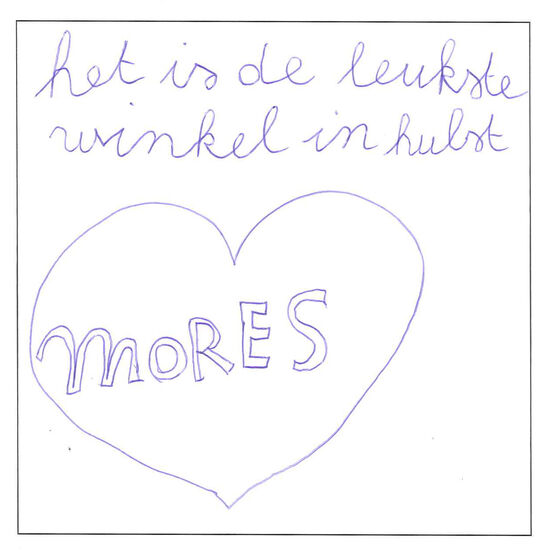 het is de leukste
winkel in hulst
mORES